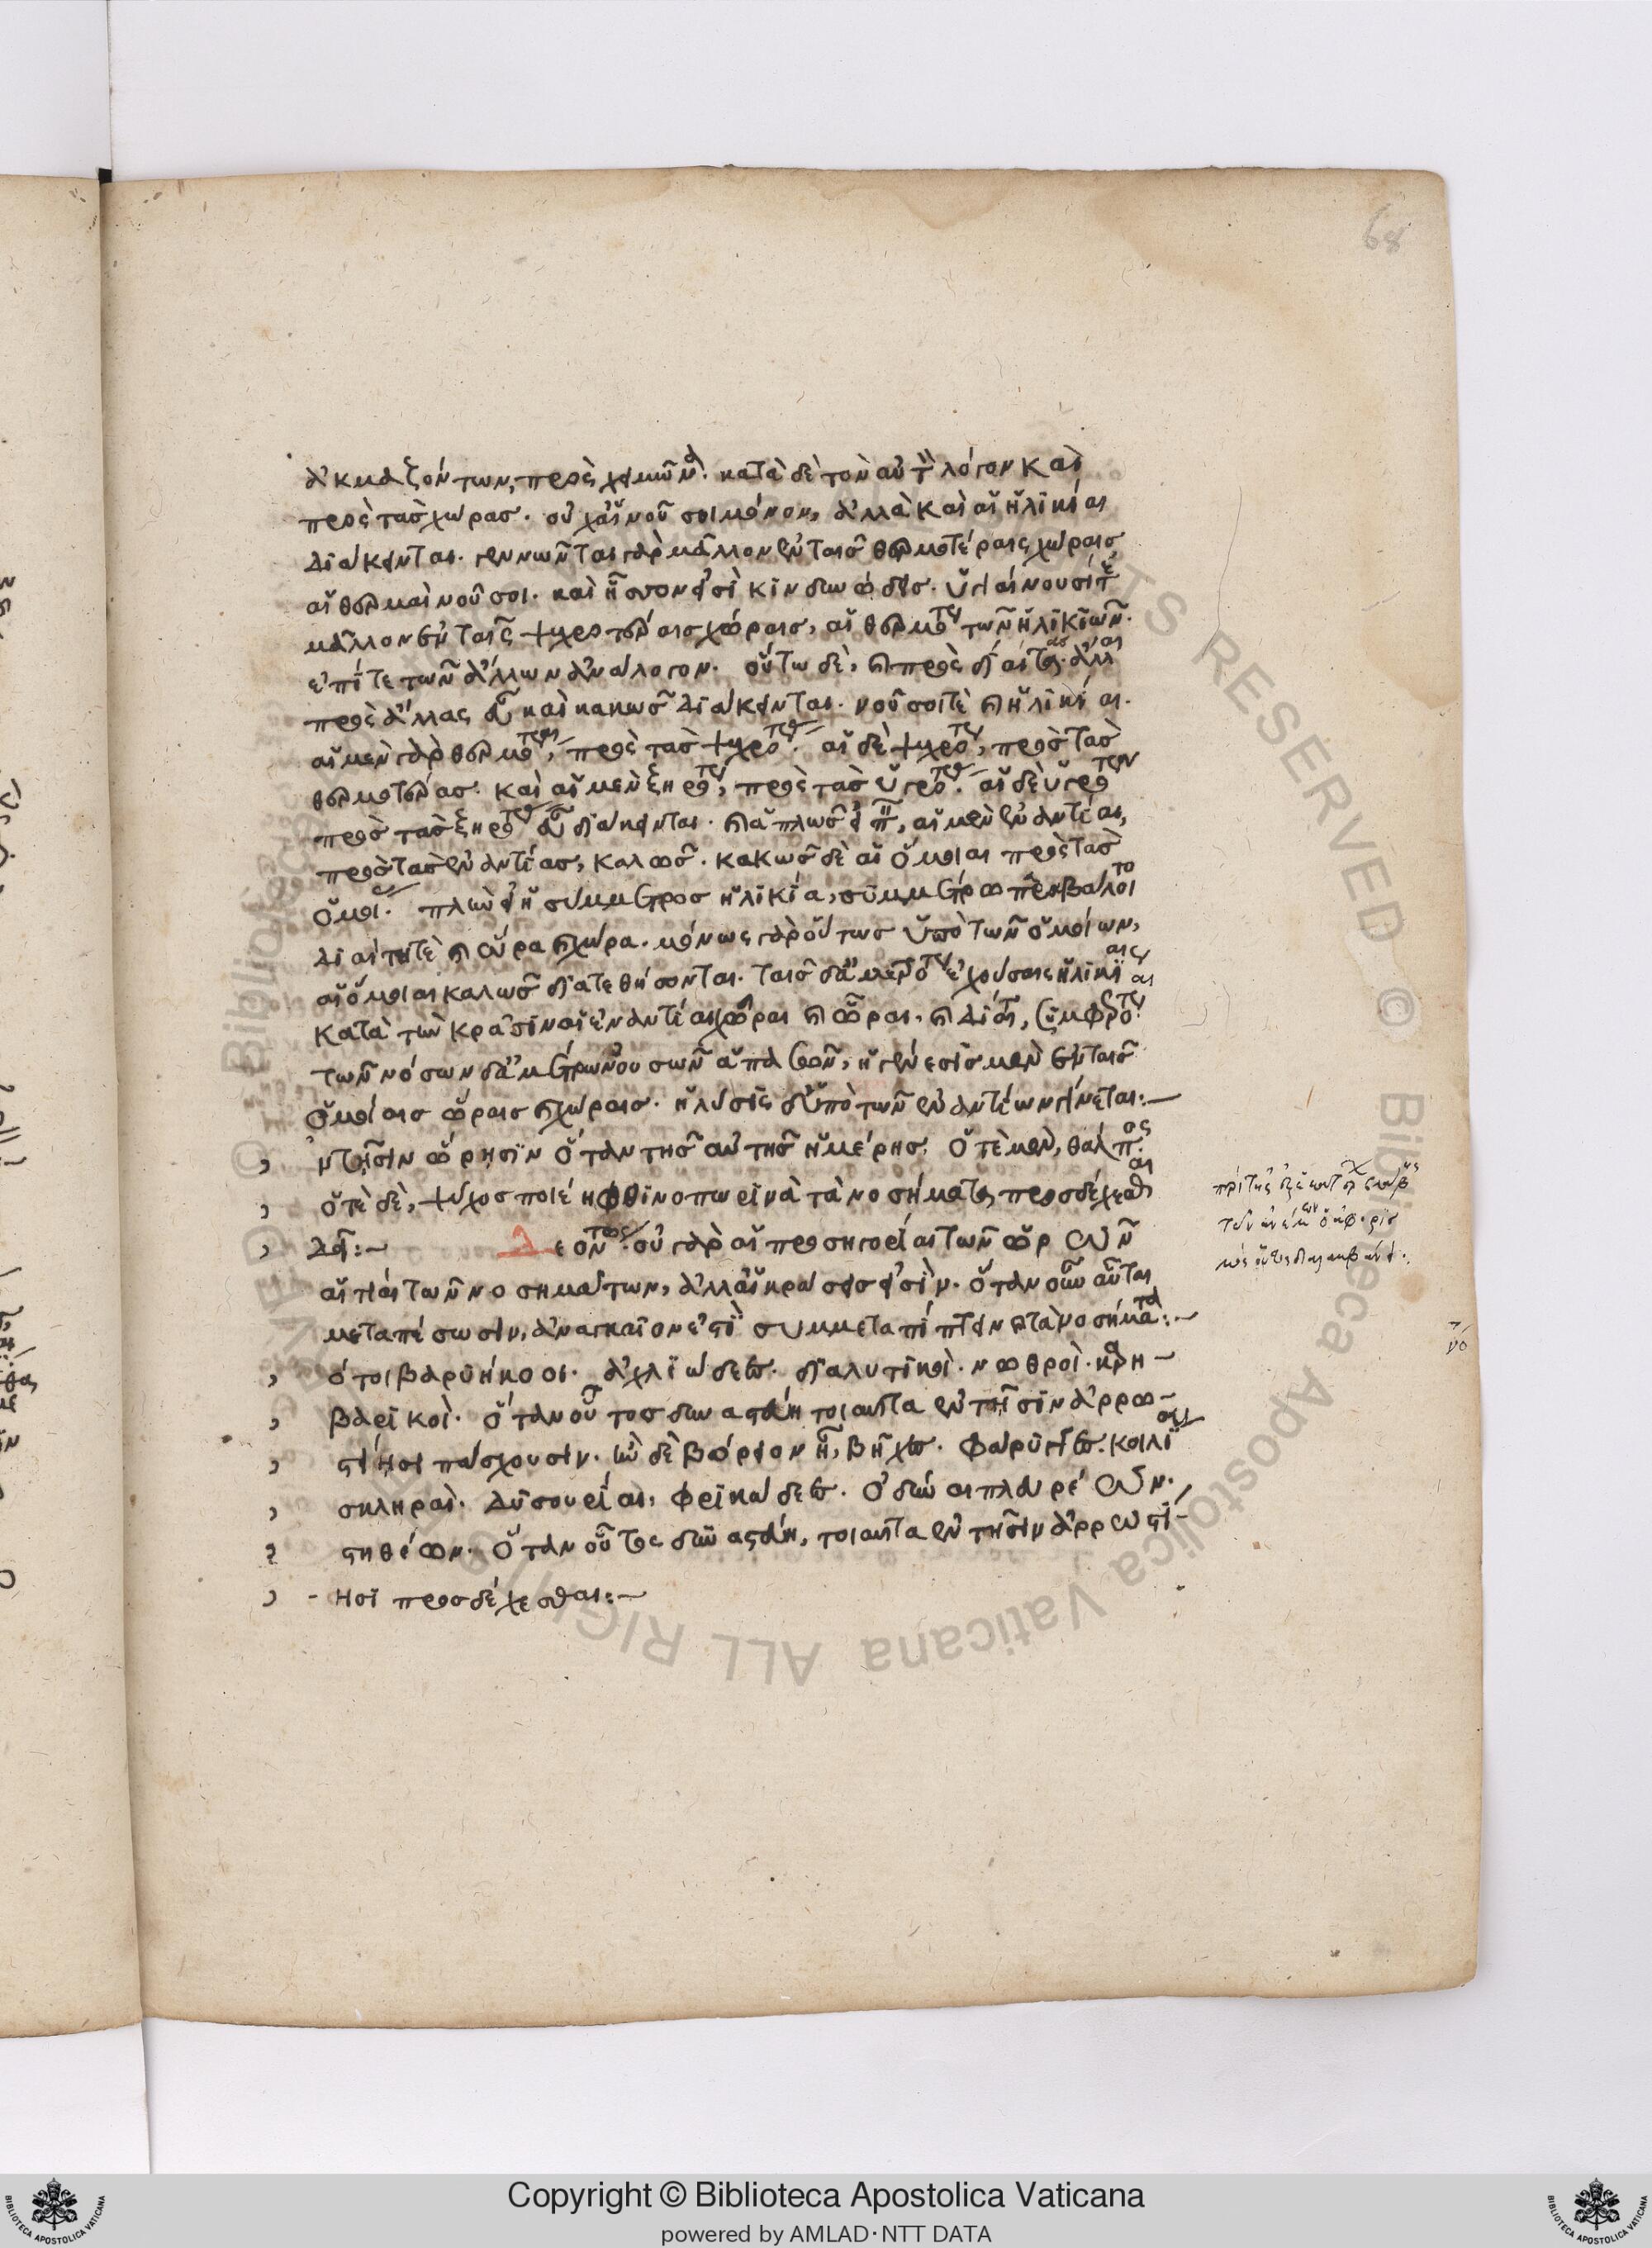 68
ἀκμαζόντων, πρὸς χειμῶνα. κατὰ δὲ τὸν αὐτὸν λόγον καὶ
πρὸς τὰς χώρας. οὐχ αἱ νοῦσοι μόνον, ἀλλὰ καὶ αἱ ἡλικίαι
διάκεινται. γεννῶνται γὰρ μᾶλλον ἐν ταῖς θερμοτέραις χώραις
αἱ θερμαὶ νοῦσοι. καὶ ἧσσον εἰσὶ κινδυνώδεις. ὑγιαίνουσί τε
μᾶλλον ἐν ταῖς ψυχροτέραις χώραις, αἱ θερμότεραι τῶν ἡλικιῶν.
ἐπί τε τῶν ἄλλων ἀνάλογον. οὕτω δὲ, καὶ πρὸς διαίτας. ἄλλαι
πρὸς ἄλλας εὖ καὶ κακῶς διάκεινται. νοῦσοί τε καὶ ἡλικίαι.
αἱ μὲν γὰρ θερμότεραι, πρὸς τὰς ψυχροτέρας. αἱ δὲ ψυχρότεραι, πρὸς τὰς
θερμοτέρας. καὶ αἱ μὲν ξηρότεραι, πρὸς τὰς ὑγροτέρας. αἱ δὲ ὑγρότεραι
πρὸς τὰς ξηροτέρας εὖ διάκεινται. καὶ ἁπλῶς εἰπεῖν, αἱ μὲν ἐναντίαι,
πρὸς τὰς ἐναντίας, καλῶς. κακῶς δὲ αἱ ὅμοιαι πρὸς τὰς
ὁμοίας. πλὴν εἰ ἡ σύμμετρος ἡλικία, συμμέτρω περιβάλοιτο
διαίτη τὲ καὶ ὥρα καὶ χώρα. μόνως γὰρ οὕτως ὑπὸ τῶν ὁμοίων,
αἱ ὅμοιαι καλῶς διατεθήσονται. ταῖς δ' ἀμετρότερον ἐχούσαις ἡλικίαις
κατὰ τὴν κρᾶσιν αἱ ἐναντίαι χῶραι καὶ ὧραι. καὶ δίαιται, συμφορώτεραι.
τῶν νόσων δ' ἀμέτρων οὐσῶν ἁπασῶν, ἡ γένεσις μὲν ἐν ταῖς
ὁμοίαις ὥραις καὶ χώραις. ἡ λύσις δ' ὑπὸ τῶν ἐναντίων γίνεται:—
ἐν τῆσιν ὥρησιν ὅταν τῆς αὐτῆς ἡμέρης. ὁτὲ μὲν, θάλπος.
ὁτὲ δὲ, ψύχος ποιέη φθινοπωρινὰ τὰ νοσήματα προσδέχεσθαι
δεῖ:— Δεόντως. οὐ γὰρ αἱ προσηγορίαι τῶν ὡρῶν
αἴτιαι τῶν νοσημάτων, ἀλλ' αἱ κράσεις εἰσίν. ὅταν οὖν αὗται
μεταπέσωσιν, ἀναγκαῖον ἐστὶ συμμεταπίπτειν καὶ τὰ νοσήματα:—
νότοι βαρυήκοοι. ἀχλυώδεες. διαλυτικοί. νωθροί. καρη-
βαρικοί. ὅταν οὗτος δυναστεύη τοιαῦτα ἐν τῆσιν ἀρρω-
στίησι πάσχουσιν. ἢν δὲ βόρειον ἦ, βῆχες. φάρυγγες. κοιλίαι
σκληραί. δυσουρίαι. φρικώδεες. ὀδύναι πλευρέων.
στηθέων. ὅταν οὗτος δυναστεύη, τοιαῦτα ἐν τῆσιν ἀρρωστί-
-ησι προσδέχεσθαι:—